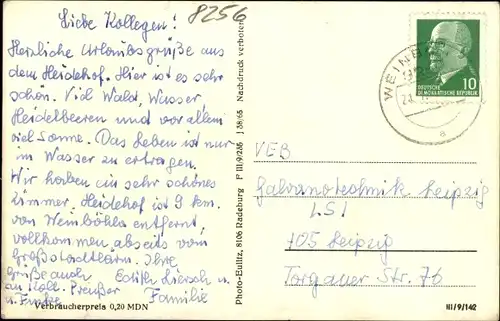 Liebe Kollegen!
8256
Herzliche Urlaubsgrüße aus
dem Heidehof. Hier ist es sehr
schön. Viel Wald, Wasser
Heidelbeeren und vor allem
viel Sonne. Das Leben ist nur
im Wasser zu ertragen.
Wir haben ein sehr schönes
Zimmer. Heidehof ist 9 km.
von Weinböhla entfernt,
vollkommen abseits vom
Großstadtlärm. Ihre
Grüße auch Edith und
an Koll. Preußer Familie
u. 
Verbraucherpreis 0,20 MDN
Photo-Eulitz, 8106 Radeburg P III/9/236 I 38/65 Nachdruck verboten
WEINB
DEUTSCHE
DEMOKRATISCHE REPUBLIK
10
a
VEB
Galvanotechnik Leipzig
LSI
705 Leipzig
Torgauer Str. 76
III/9/142